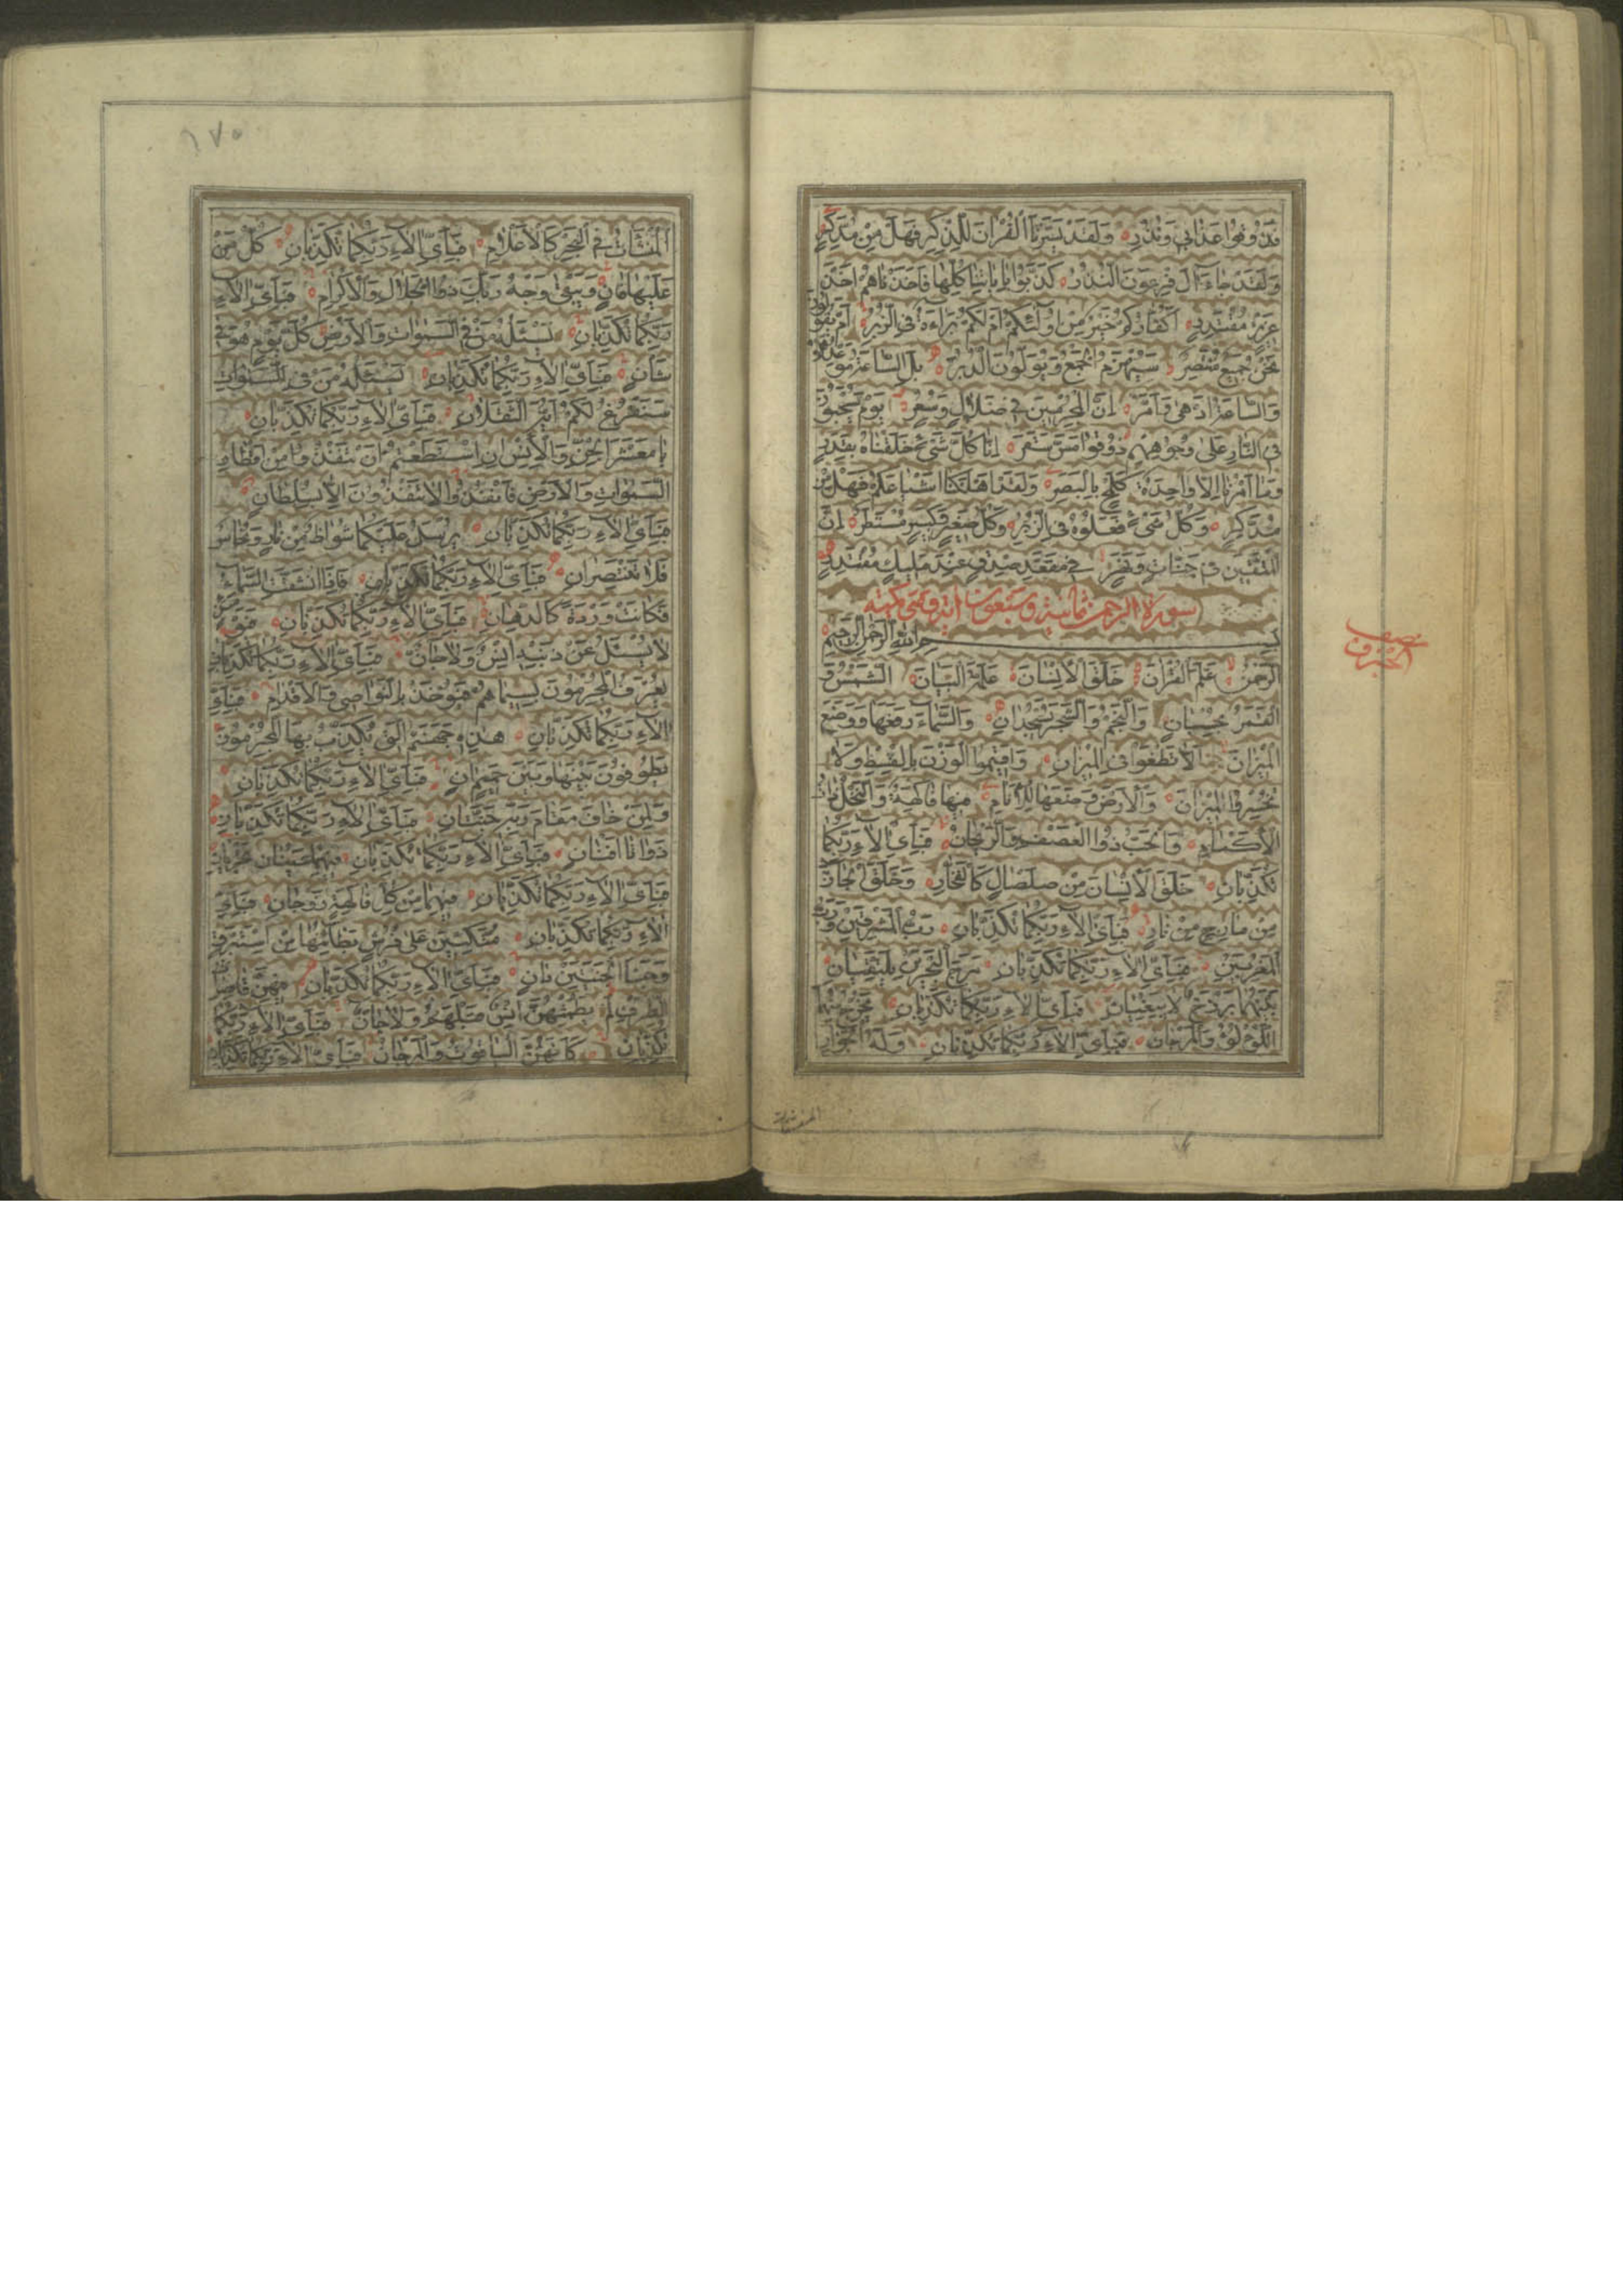 فذوقوا عذابي ونذر ولقد يسرنا القران للذكر فهل من مدكر
ولقد جاء ال فرعون النذر كذبوا باياتنا كلها فاخذناهم اخذ
عزيز مقتدر اكفاركم خير من اولئكم ام لكم براءة في الزبر ام يقولون
نحن جميع منتصر سيهزم الجمع ويولون الدبر بل الساعة موعدهم
والساعة ادهى وامر ان المجرمين في ضلال وسعر يوم يسحبون
في النار على وجوههم ذوقوا مس سقر انا كل شيء خلقناه بقدر
وما امرنا الا واحدة كلمح بالبصر ولقد اهلكنا اشياعكم فهل من
مدكر وكل شيء فعلوه في الزبر وكل صغير وكبير مستطر ان
المتقين في جنات ونهر في مقعد صدق عند مليك مقتدر
سورة الرحمن ثمانية وسبعون اية وهي مكية
بسم الله الرحمن الرحيم
الرحمن علم القران خلق الانسان علمه البيان الشمس و
القمر بحسبان والنجم والشجر يسجدان والسماء رفعها ووضع
الميزان الا تطغوا في الميزان واقيموا الوزن بالقسط ولا
تخسروا الميزان والارض وضعها للانام فيها فاكهة والنخل ذات
الاكمام والحب ذوا العصف والريحان فباي الاء ربكما
تكذبان خلق الانسان من صلصال كالفخار وخلق الجان
من مارج من نار فباي الاء ربكما تكذبان رب المشرقين ورب
المغربين فباي الاء ربكما تكذبان مرج البحرين يلتقيان
بينهما برزخ لا يبغيان فباي الاء ربكما تكذبان يخرج منهما
اللؤلؤ والمرجان فباي الاء ربكما تكذبان وله الجوار
المنشات
نصف
الجزء
١٧٥
المنشات في البحر كالاعلام فباي الاء ربكما تكذبان كل من
عليها فان ويبقى وجه ربك ذوا الجلال والاكرام فباي الاء
ربكما تكذبان يسئله من في السموات والارض كل يوم هو في
شان فباي الاء ربكما تكذبان يسئله من في السموات
سنفرغ لكم ايه الثقلان فباي الاء ربكما تكذبان
يا معشر الجن والانس ان استطعتم ان تنفذوا من اقطار
السموات والارض فانفذوا لا تنفذون الا بسلطان
فباي الاء ربكما تكذبان يرسل عليكما شواظ من نار ونحاس
فلا تنتصران فباي الاء ربكما تكذبان فاذا انشقت السماء
فكانت وردة كالدهان فباي الاء ربكما تكذبان فيومئذ
لا يسئل عن ذنبه انس ولا جان فباي الاء ربكما تكذبان
يعرف المجرمون بسيماهم فيؤخذ بالنواصي والاقدام فباي
الاء ربكما تكذبان هذه جهنم التي يكذب بها المجرمون
يطوفون بينها وبين حميم ان فباي الاء ربكما تكذبان
ولمن خاف مقام ربه جنتان فباي الاء ربكما تكذبان
ذواتا افنان فباي الاء ربكما تكذبان فيهما عينان تجريان
فباي الاء ربكما تكذبان فيهما من كل فاكهة زوجان فباي
الاء ربكما تكذبان متكئين على فرش بطائنها من استبرق
وجنا الجنتين دان فباي الاء ربكما تكذبان فيهن قاصرات
الطرف لم يطمثهن انس قبلهم ولا جان فباي الاء ربكما
تكذبان كانهن الياقوت والمرجان فباي الاء ربكما تكذبان